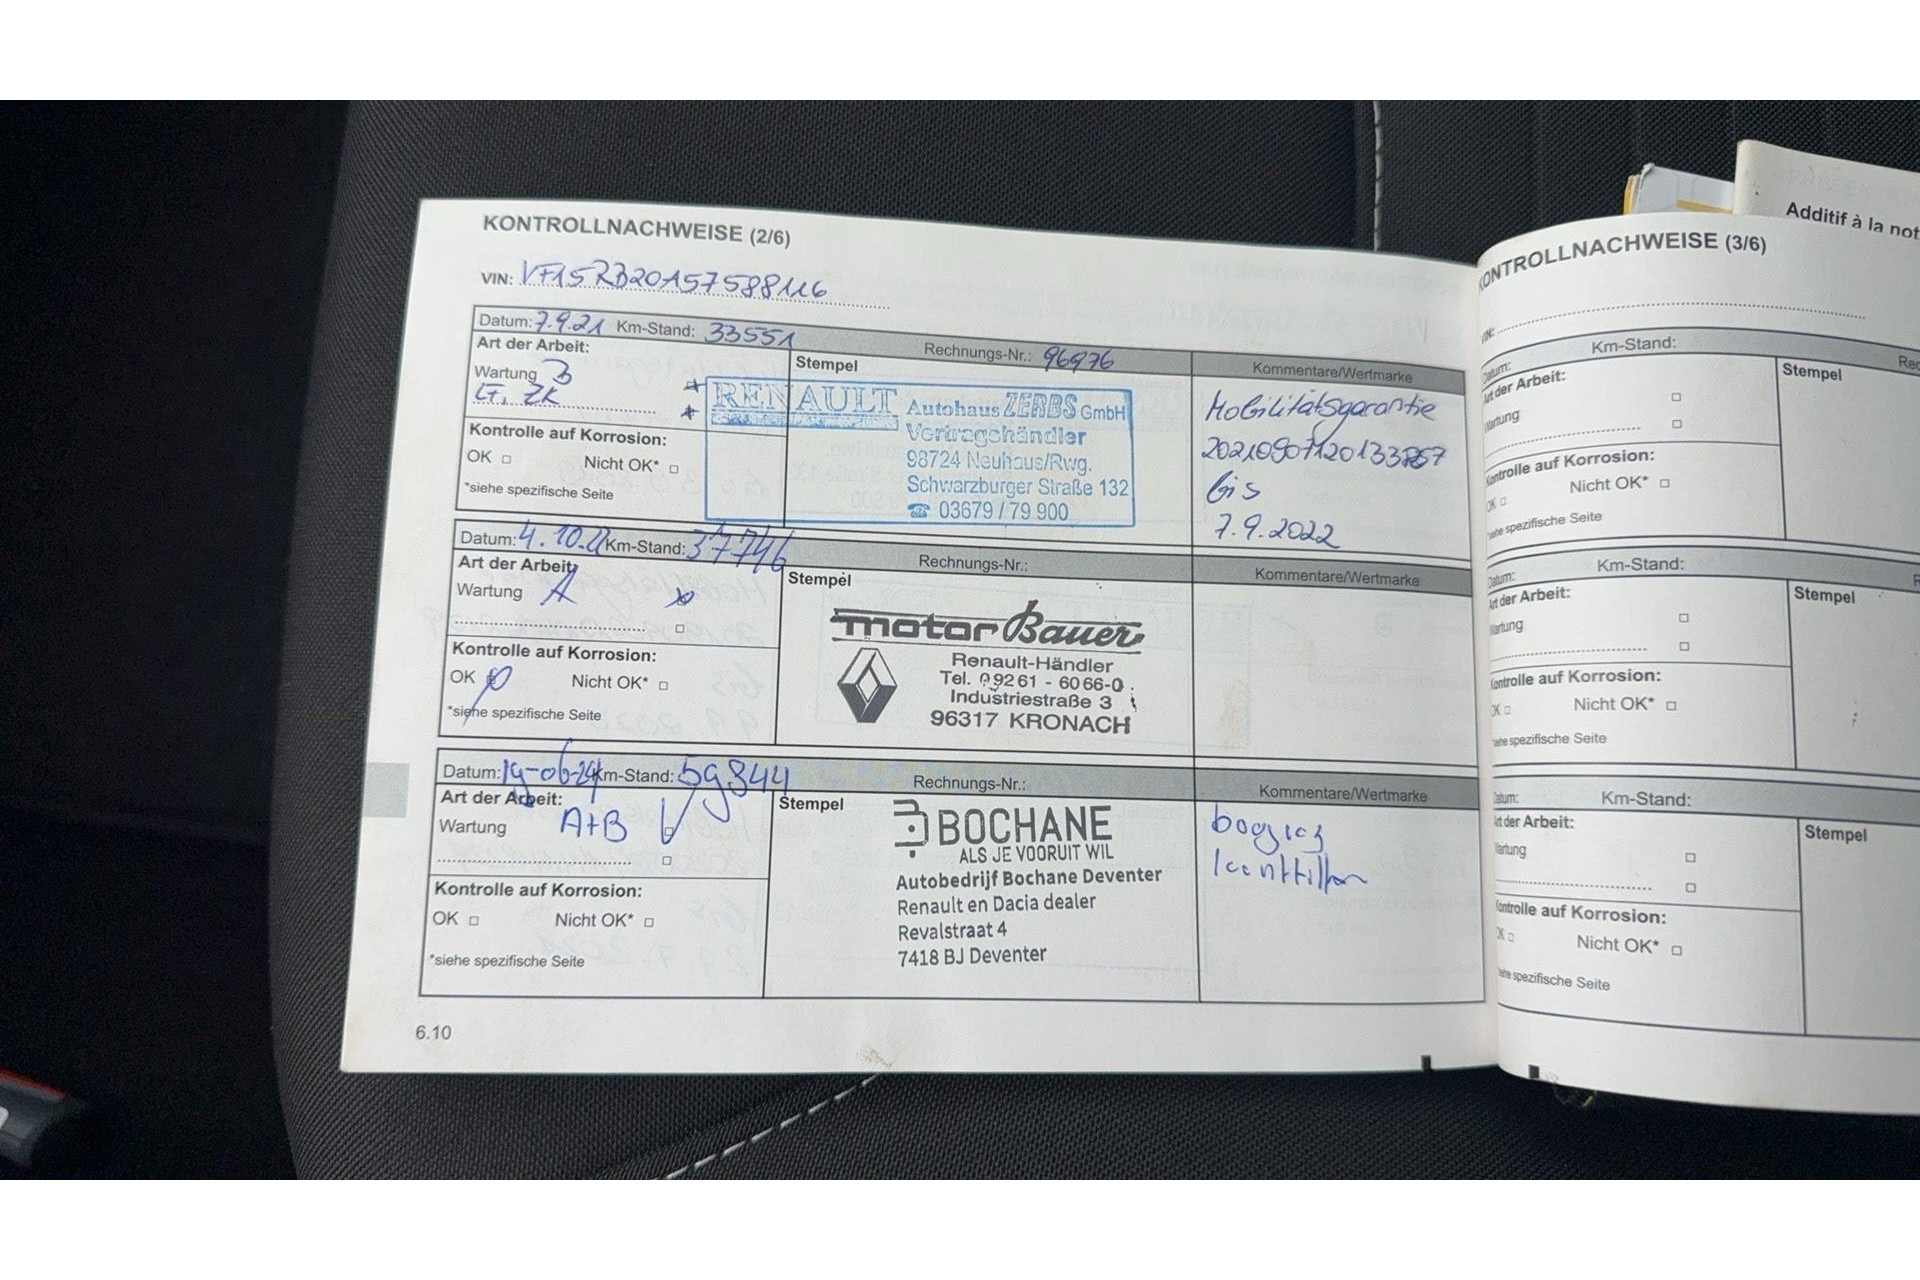 Additif à la not
KONTROLLNACHWEISE (2/6)
VIN: VF15RB20157588116
Datum: 7.9.21 Km-Stand: 33551 Rechnungs-Nr.: 96976 Kommentare/Wertmarke
Art der Arbeit:
Wartung B
LF, ZK
Kontrolle auf Korrosion:
OK Nicht OK*
*siehe spezifische Seite
Stempel
RENAULT
Autohaus ZERBS GmbH
Vertragshändler
98724 Neuhaus/Rwg.
Schwarzburger Straße 132
☎ 03679 / 79 900
Mobilitätsgarantie
bis
7.9.2022
Datum: 4.10.2 Km-Stand: 37746 Rechnungs-Nr.: Kommentare/Wertmarke
Art der Arbeit:
Wartung A
Kontrolle auf Korrosion:
OK Nicht OK*
*siehe spezifische Seite
Stempel
motor Bauer
Renault-Händler
Tel. 09261 - 6066-0
Industriestraße 3
96317 KRONACH
Datum: 19-06-24 Km-Stand: 59844 Rechnungs-Nr.: Kommentare/Wertmarke
Art der Arbeit:
Wartung A+B
Kontrolle auf Korrosion:
OK Nicht OK*
*siehe spezifische Seite
Stempel
BOCHANE
ALS JE VOORUIT WIL
Autobedrijf Bochane Deventer
Renault en Dacia dealer
Revalstraat 4
7418 BJ Deventer
6.10
KONTROLLNACHWEISE (3/6)
VIN:
Datum: Km-Stand: Rec
Art der Arbeit:
Wartung
Kontrolle auf Korrosion:
OK Nicht OK*
siehe spezifische Seite
Stempel
Datum: Km-Stand: R
Art der Arbeit:
Wartung
Kontrolle auf Korrosion:
OK Nicht OK*
siehe spezifische Seite
Stempel
Datum: Km-Stand:
Art der Arbeit:
Wartung
Kontrolle auf Korrosion:
OK Nicht OK*
siehe spezifische Seite
Stempel